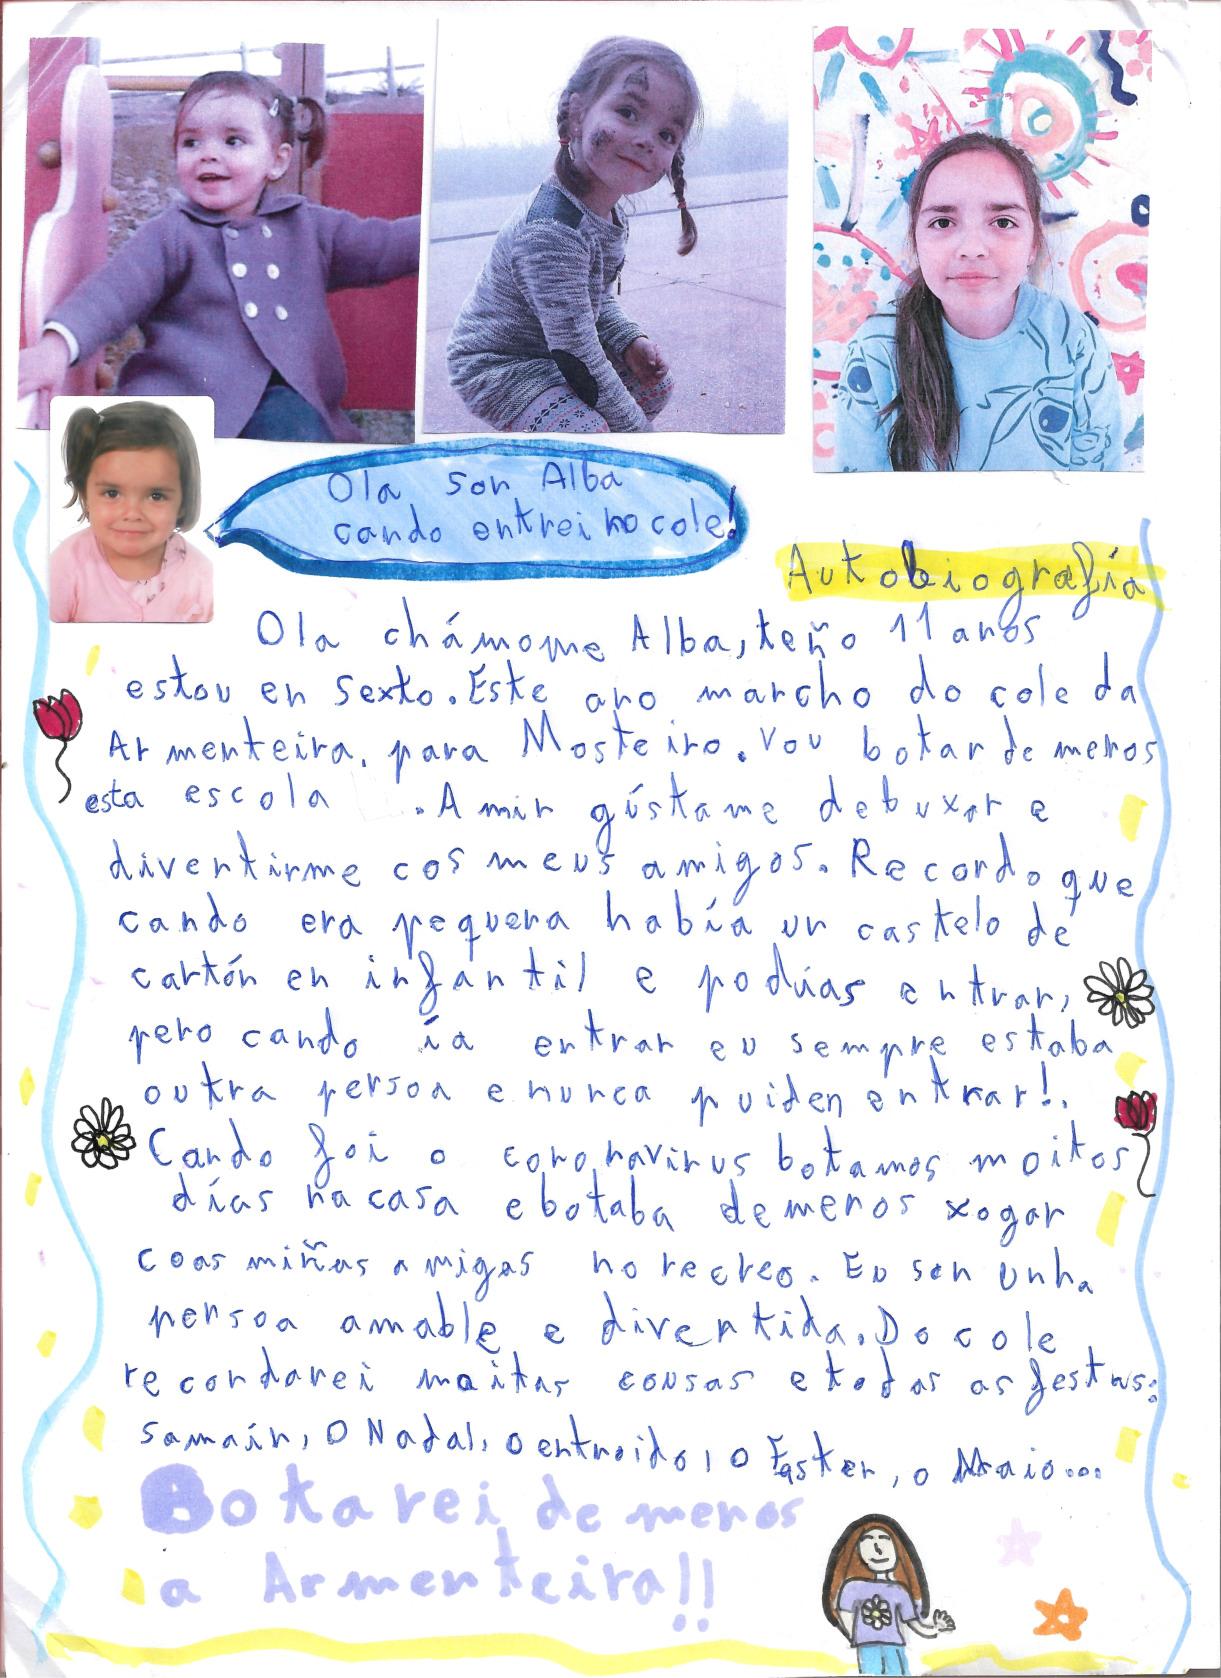 Ola son Alba
cando entrei no cole!
Autobiografía
Ola chámome Alba, teño 11 anos
estou en sexto. Este ano marcho do cole da
Armenteira, para Mosteiro. Vou botar de menos
esta escola . A min gústame debuxar e
divertirme cos meus amigos. Recordo que
cando era pequena había un castelo de
cartón en infantil e podías entrar,
pero cando ía entrar eu sempre estaba
outra persoa e nunca puiden entrar!.
Cando foi o coronavirus botamos moitos
días na casa e botaba de menos xogar
coas miñas amigas no recreo. Eu son unha
persoa amable e divertida. Do cole
recordarei moitas cousas e todas as festas:
samaín, O Nadal, o entroido, o Easter, o Maio...
Botarei de menos
a Armenteira!!